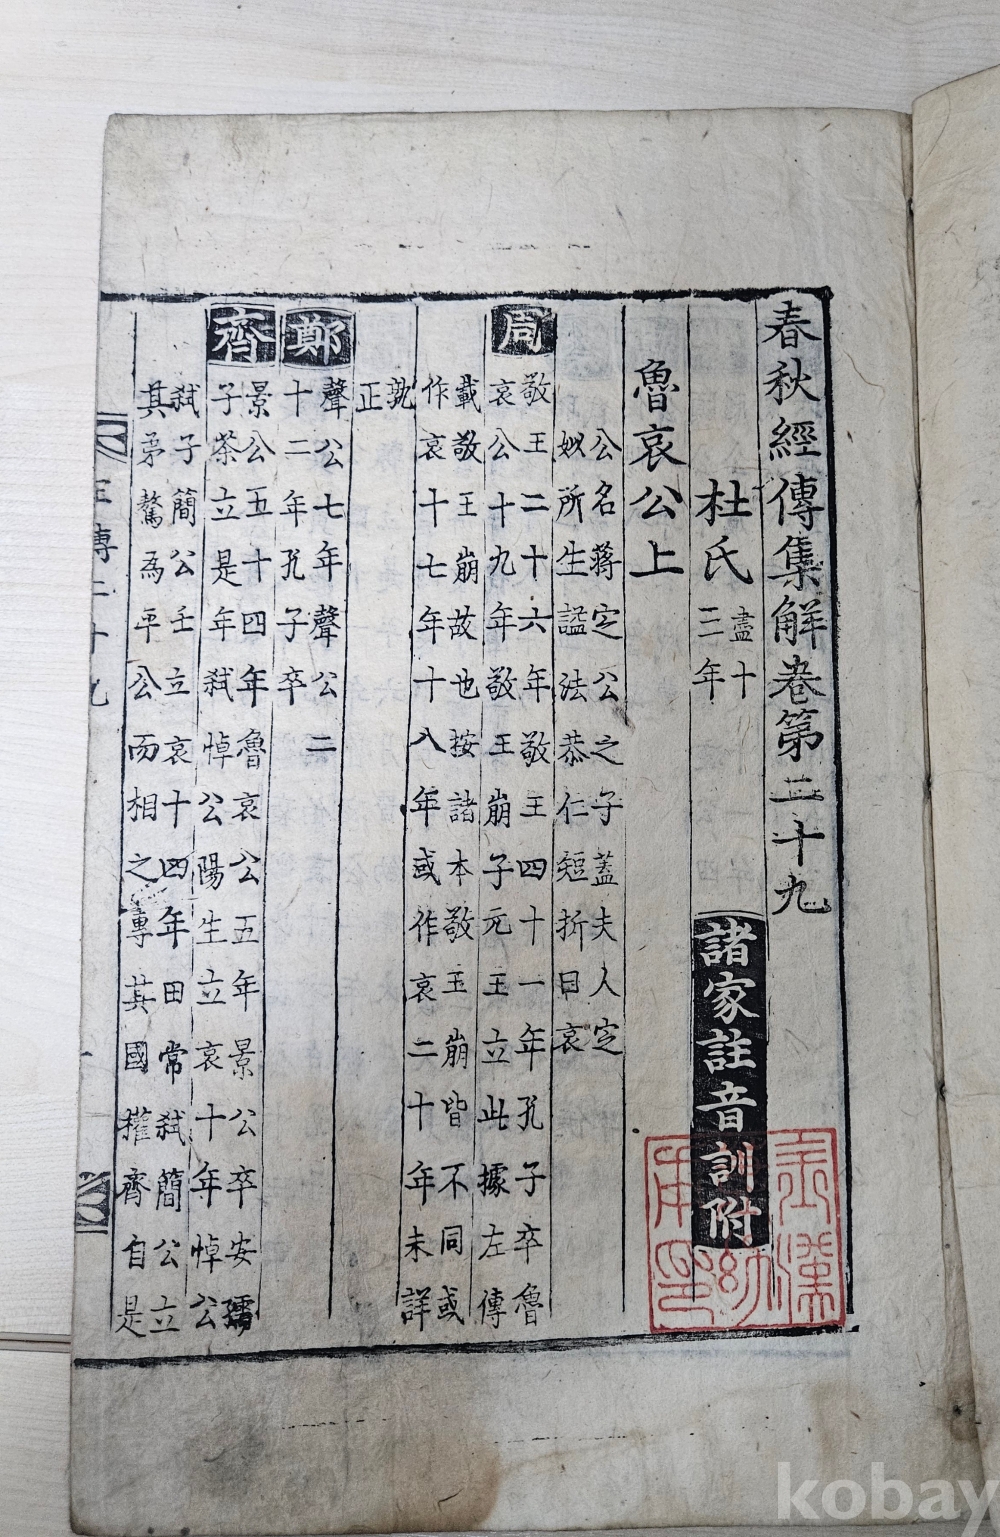 春秋經傳集解卷第二十九
杜氏
盡十
三年
諸家註音訓附
魯哀公上
公名蔣定公之子蓋夫人定
姒所生謚法恭仁短折曰哀
周
敬王二十六年敬王四十一年孔子卒魯
哀公十九年敬王崩子元王立此據左傳
載敬王崩故也按諸本敬王崩皆不同或
作哀十七年十八年或作哀二十年未詳
孰
正
鄭
聲公七年聲公二
十二年孔子卒
齊
景公五十四年魯哀公五年景公卒安孺
子荼立是年弒悼公陽生立哀十年悼公
弒子簡公壬立哀十四年田常弒簡公立
其弟驁為平公而相之專其國權齊自是
左傳二十九
kobay